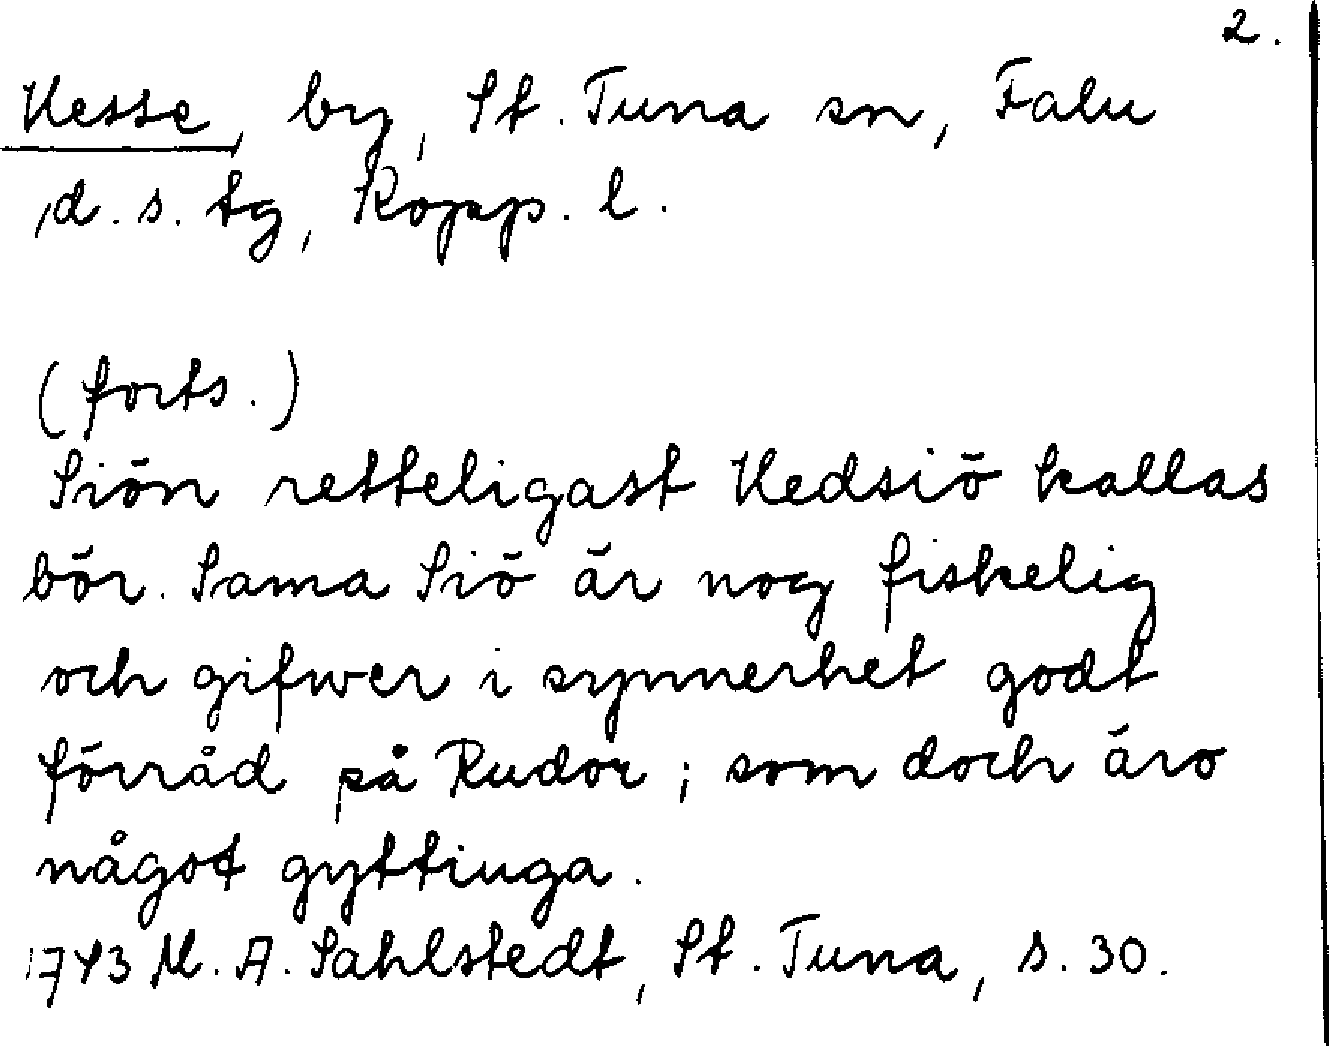 2.
Hesse, by, St. Tuna sn, Falu
d. s. tg, Kopp. l.
(forts.)
Siön retteligast Hedsiö kallas
bör. Sama Siö är nog fiskelig
och gifwer i synnerhet godt
förråd på Rudor; som doch äro
något gyttiuga.
1743 M. A. Sahlstedt, St. Tuna, s. 30.